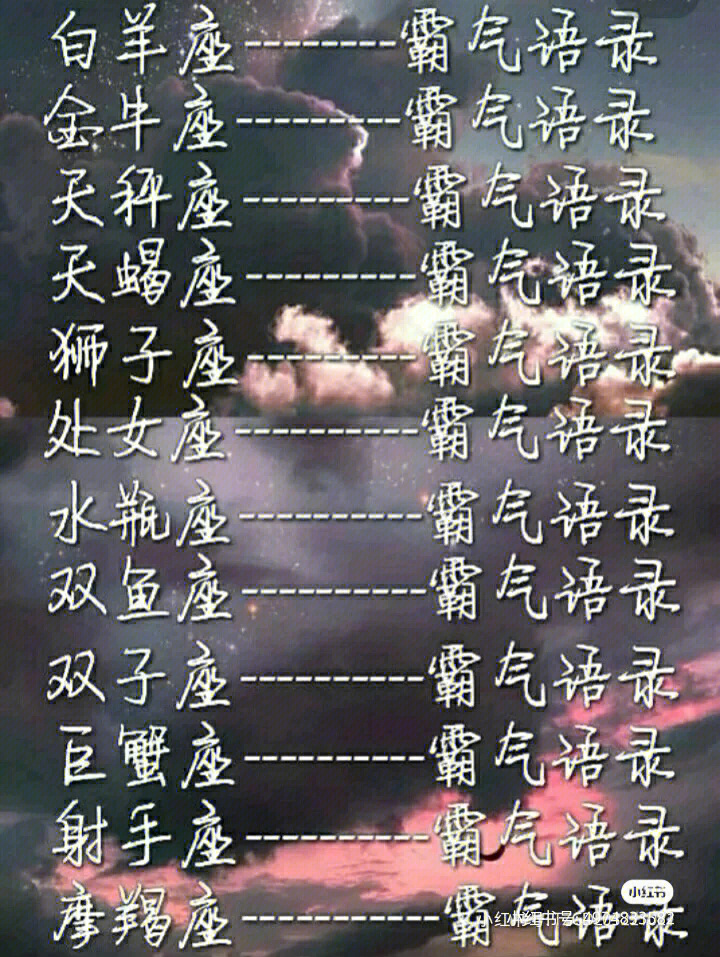 白羊座---------霸气语录
金牛座----------霸气语录
天秤座----------霸气语录
天蝎座----------霸气语录
狮子座----------霸气语录
处女座-----------霸气语录
水瓶座-----------霸气语录
双鱼座-----------霸气语录
双子座-----------霸气语录
巨蟹座-----------霸气语录
射手座-----------霸气语录
小红书
摩羯座------------霸气语录